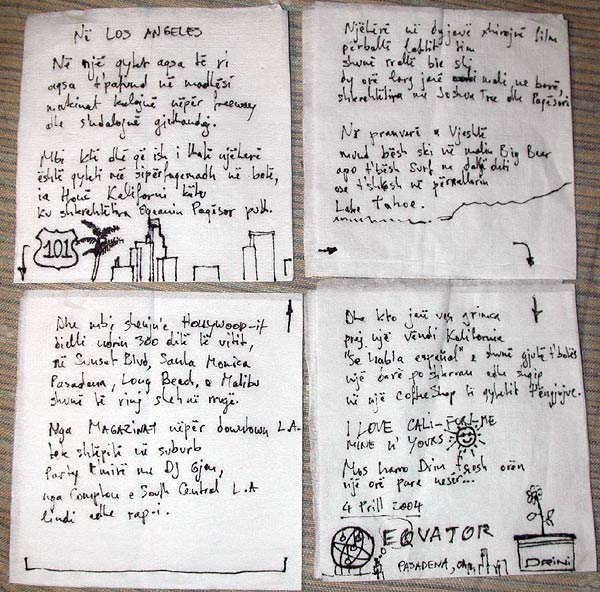 Në LOS ANGELES
Në një qytet aqsa të ri
aqsa t'pafund në madhësi
makinat kalojnë nëpër freeway
dhe s'ndalojnë gjithandej.
Mbi ktë dhé që ish i thatë njëherë
është qyteti më sipërfaqemadh në botë,
ia Honë Kaliforni këte
ku shkrehtëtira Oqeanin Paqësor puth.
101
Njëherë në dy javë xhirojnë film
përballë
shumë rrallë bie shi
dy orë larg janë male me borë,
shkrehtëtira me Joshua Tree dhe Paqësori
N'pranverë e Vjeshtë
mund bësh ski në malin Big Bear
apo t'bësh Surf në
ose t'shkosh në
Lake Tahoe.
Dhe mbi shenjn'e HOLLYWOOD-it
dielli 300 ditë të vitit,
në Sunset Blvd, Santa Monica
Pasadena, Long Beach, e Malibu
shumë të rinj sheh në rrugë.
Nga MAGAZINAT nëpër downtown L.A.
tek shtëpitë në suburb
Party t'mirë me DJ gjen,
nga Compton e South Central L.A
lindi edhe rap-i.
Dhe kto janë veç grimca
prej një vëndi Kalifornia
"Se habla español" e shumë gjuhë t'botës
një ëndrrë po shkruan edhe shqip
në një Coffe Shop të qytetit t'ëngjujve.
I LOVE CALI-FOR-ME
MINE N' YOURS
Mos harro Drin t'kosh orën
një orë para nesër...
4 Prill 2004
EQVATOR
PASADENA,
DRINI